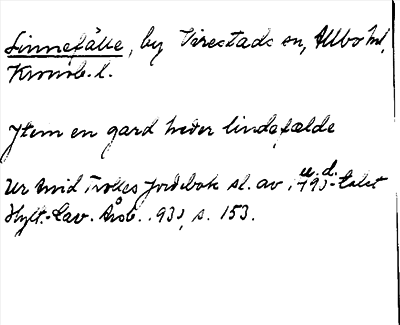 Linnefälle, by Virestads sn, Allbo hd,
Kronob. l.
Item en gard heder lindefælde
u. d.
Ur Arvid Trolles jordebok sl. av 149 -talet
Hylt.-Cav. Årsb. 193 , s. 153.